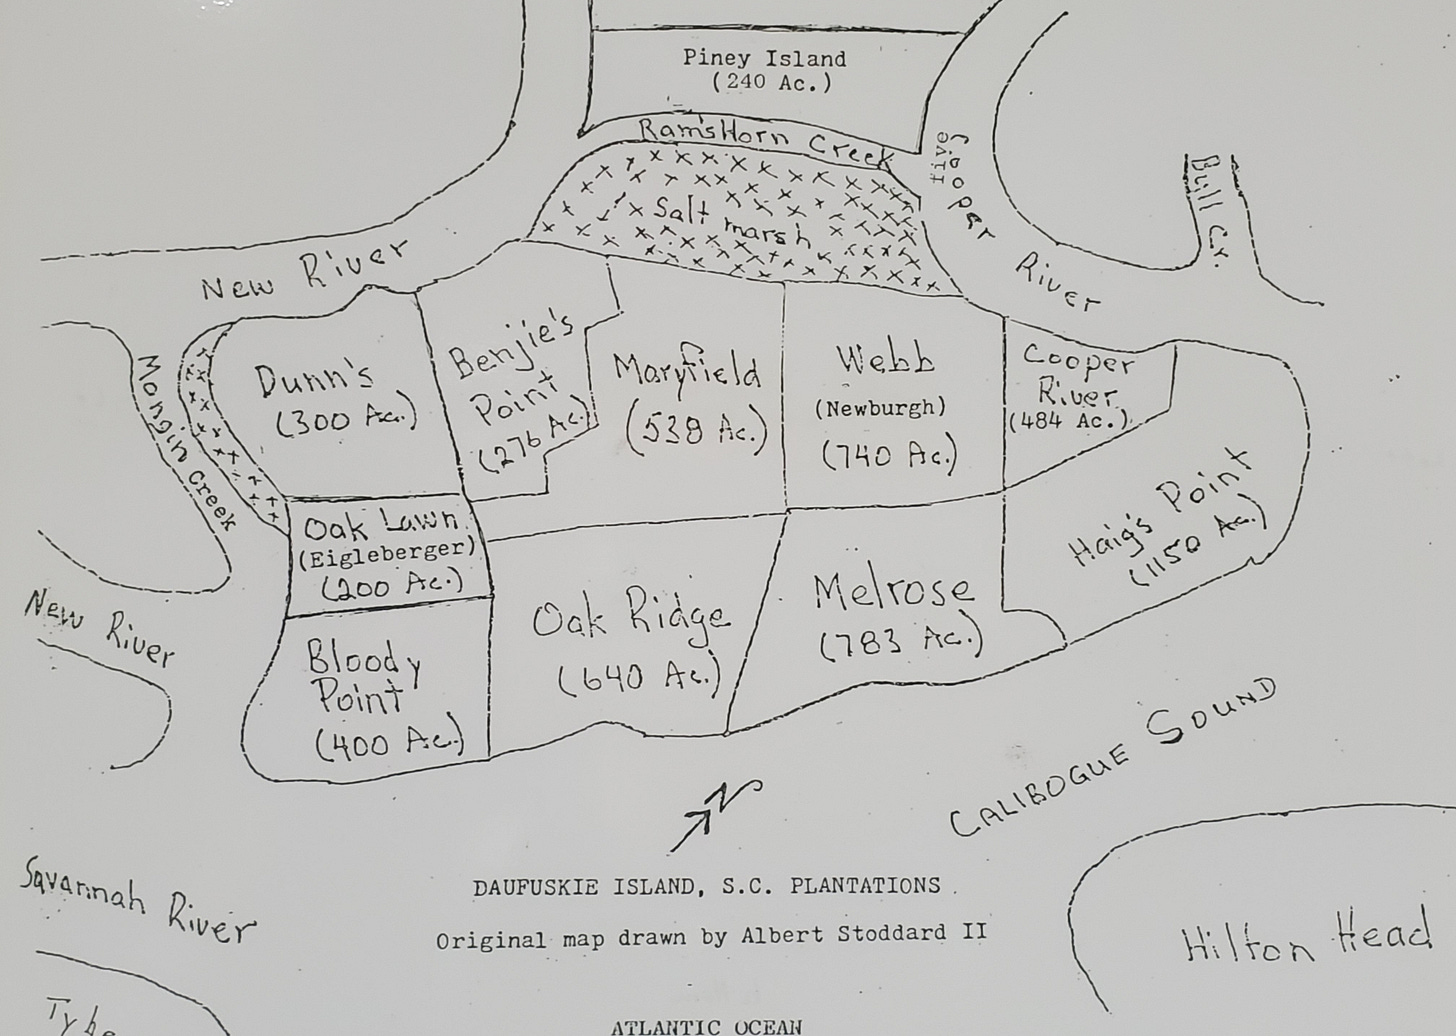 Piney Island
(240 Ac.)
Ram's Horn Creek
five
Cooper
River
Bull Cr.
Salt marsh
New River
Mongin Creek
Dunn's
(300 Ac.)
Benjie's
Point
(276 Ac.)
Maryfield
(538 Ac.)
Webb
(Newburgh)
(740 Ac.)
Cooper
River
(484 Ac.)
Haig's Point
(1150 Ac.)
Oak Lawn
(Eigleberger)
(200 Ac.)
Oak Ridge
(640 Ac.)
Melrose
(783 Ac.)
New River
Bloody
Point
(400 Ac.)
CALIBOGUE SOUND
N
Savannah River
DAUFUSKIE ISLAND, S.C. PLANTATIONS
Original map drawn by Albert Stoddard II
Hilton Head
ATLANTIC OCEAN